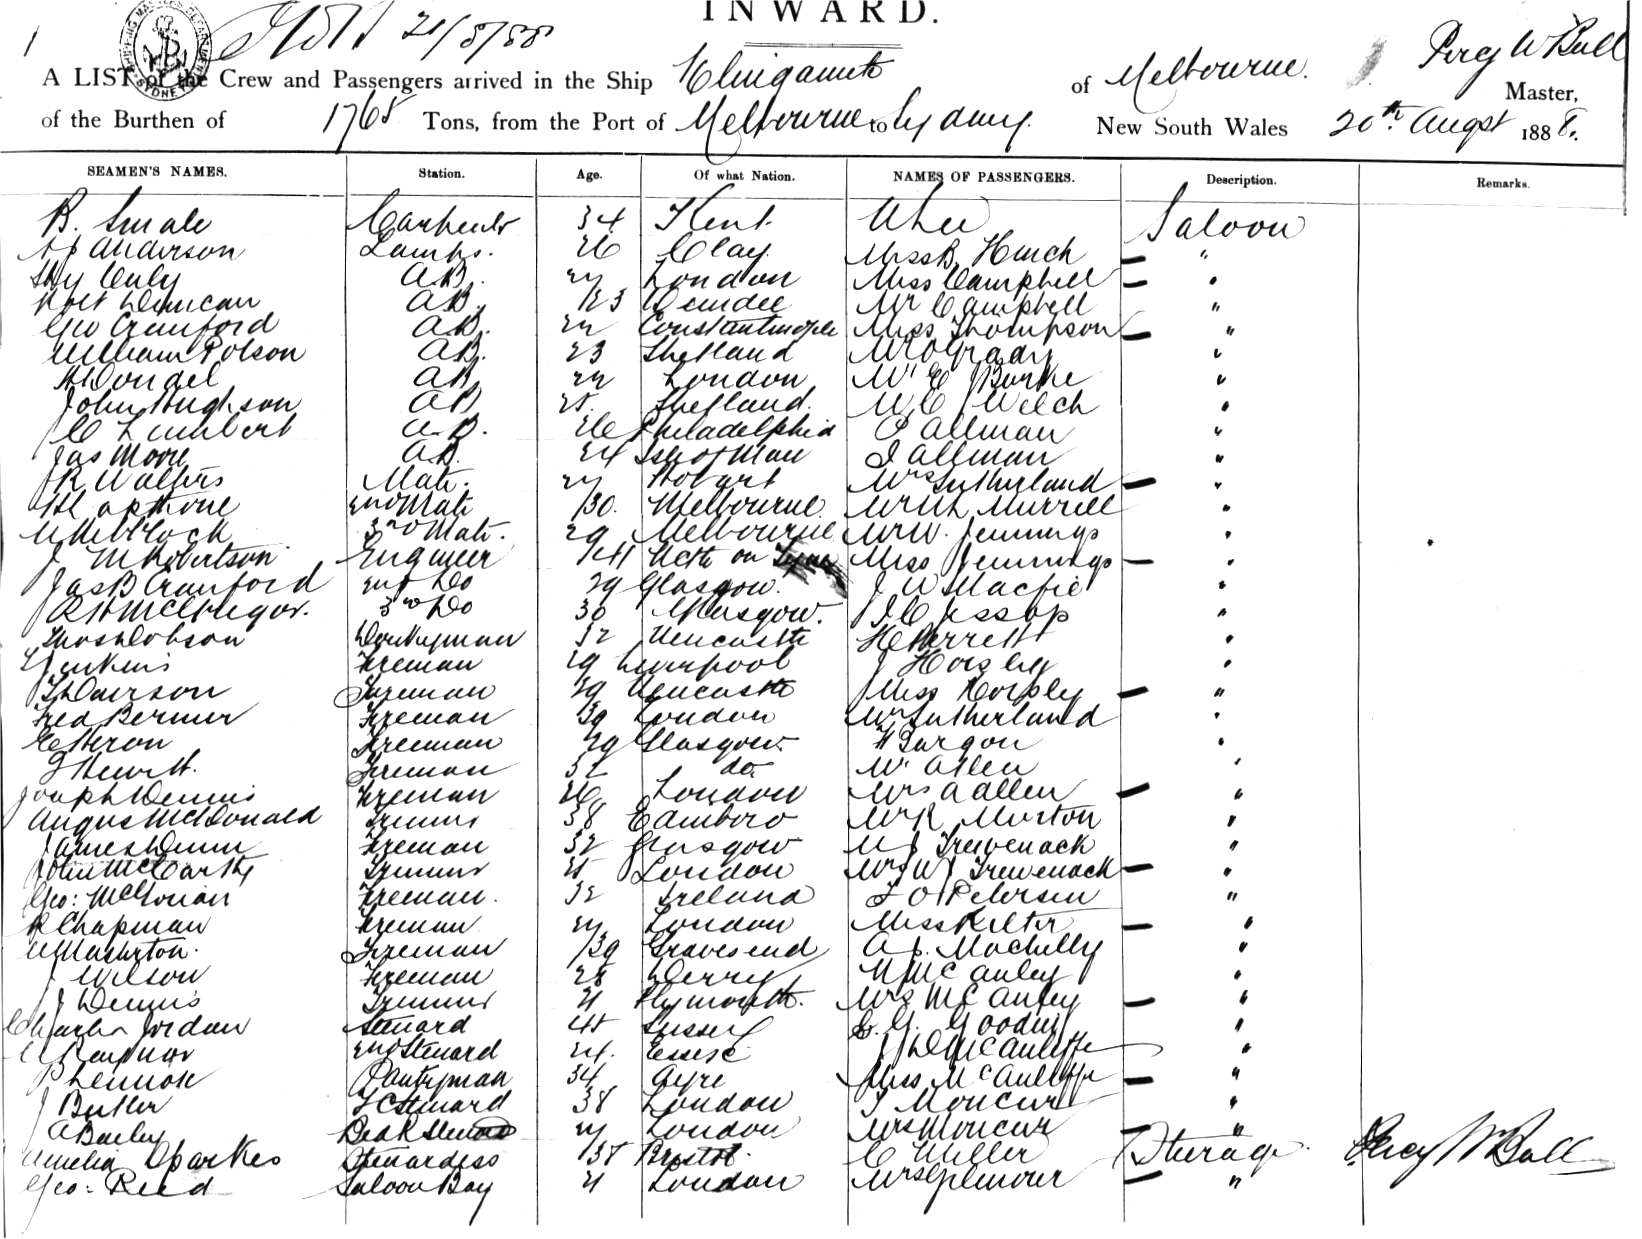 INWARD.
21/8/88
Percy W Ball
A LIST of the Crew and Passengers arrived in the Ship Elingamite of Melbourne. Master,
of the Burthen of 1765 Tons, from the Port of Melbourne to Sydney. New South Wales 20th Augst 1888.
SEAMEN'S NAMES. Station. Age. Of what Nation. NAMES OF PASSENGERS. Description. Remarks.
B. Smale Carpenter 34 Kent Saloon
Anderson Lamps. 26 Miss "
AB. 27 London Miss Campbell "
Robt Duncan AB. 23 Dundee Mr Campbell "
Geo Crawford AB. 22 Constantinople Miss Thompson "
William Polson AB. 23 Shetland Mr O'Grady "
AB 27 London Mr E Burke "
John Hughson AB 25. Shetland. Welch "
AB. 26 Philadelphia P Allman "
Jas Moore AB. 24 Isle of Man J Allman "
R Walters Mate. 27 Hobart Mrs Sutherland "
2nd Mate 30. Melbourne. Murrell "
3rd Mate. 29 Melbourne Mr W. Jennings "
J M Robertson Engineer 41 Miss Jennings "
Jas B Crawford 2nd Do 29 Glasgow. J W Macfie "
McGregor. 3rd Do 30 Glasgow. J C Jessop "
Thos Dobson Donkeyman 32 Newcastle H Perrett "
Jenkins Fireman 29 Liverpool J Horsley "
Davison Fireman 39 Newcastle Miss Horsley "
Fred Fireman 39 London Mr Sutherland "
Heron Fireman 29 Glasgow. "
Hewitt. Fireman 32 do. Mr Allen "
Joseph Dennis Fireman 26 London Mrs A Allen "
Angus McDonald Trimmer 38 Edinboro Mr R Morton "
James Dunn Fireman 32 Glasgow J Trewenack "
John McCarthy Trimmer 25 London Mrs W J Trewenack "
Geo: Fireman. 32 Ireland Petersen "
R Chapman Fireman 27 London Miss "
Fireman 39 Gravesend "
J Wilson Fireman 28 Derry McAuley "
J Dennis Trimmer 21 Plymouth. Mrs McAuley "
Charles Jordan Steward 45 Sussex "
2nd Steward 24. Essex McAuliffe "
P Lennox Pantryman 34 Ayre Miss McAuliffe "
J Butler F C Steward 38 London Moncur "
A Bailey Steward 27 London Mrs Moncur "
Amelia Sparkes Stewardess 38 Bristol. C Miller Steerage. Percy W Ball
Geo: Reed Saloon Boy 21 London Mrs Gilmour "